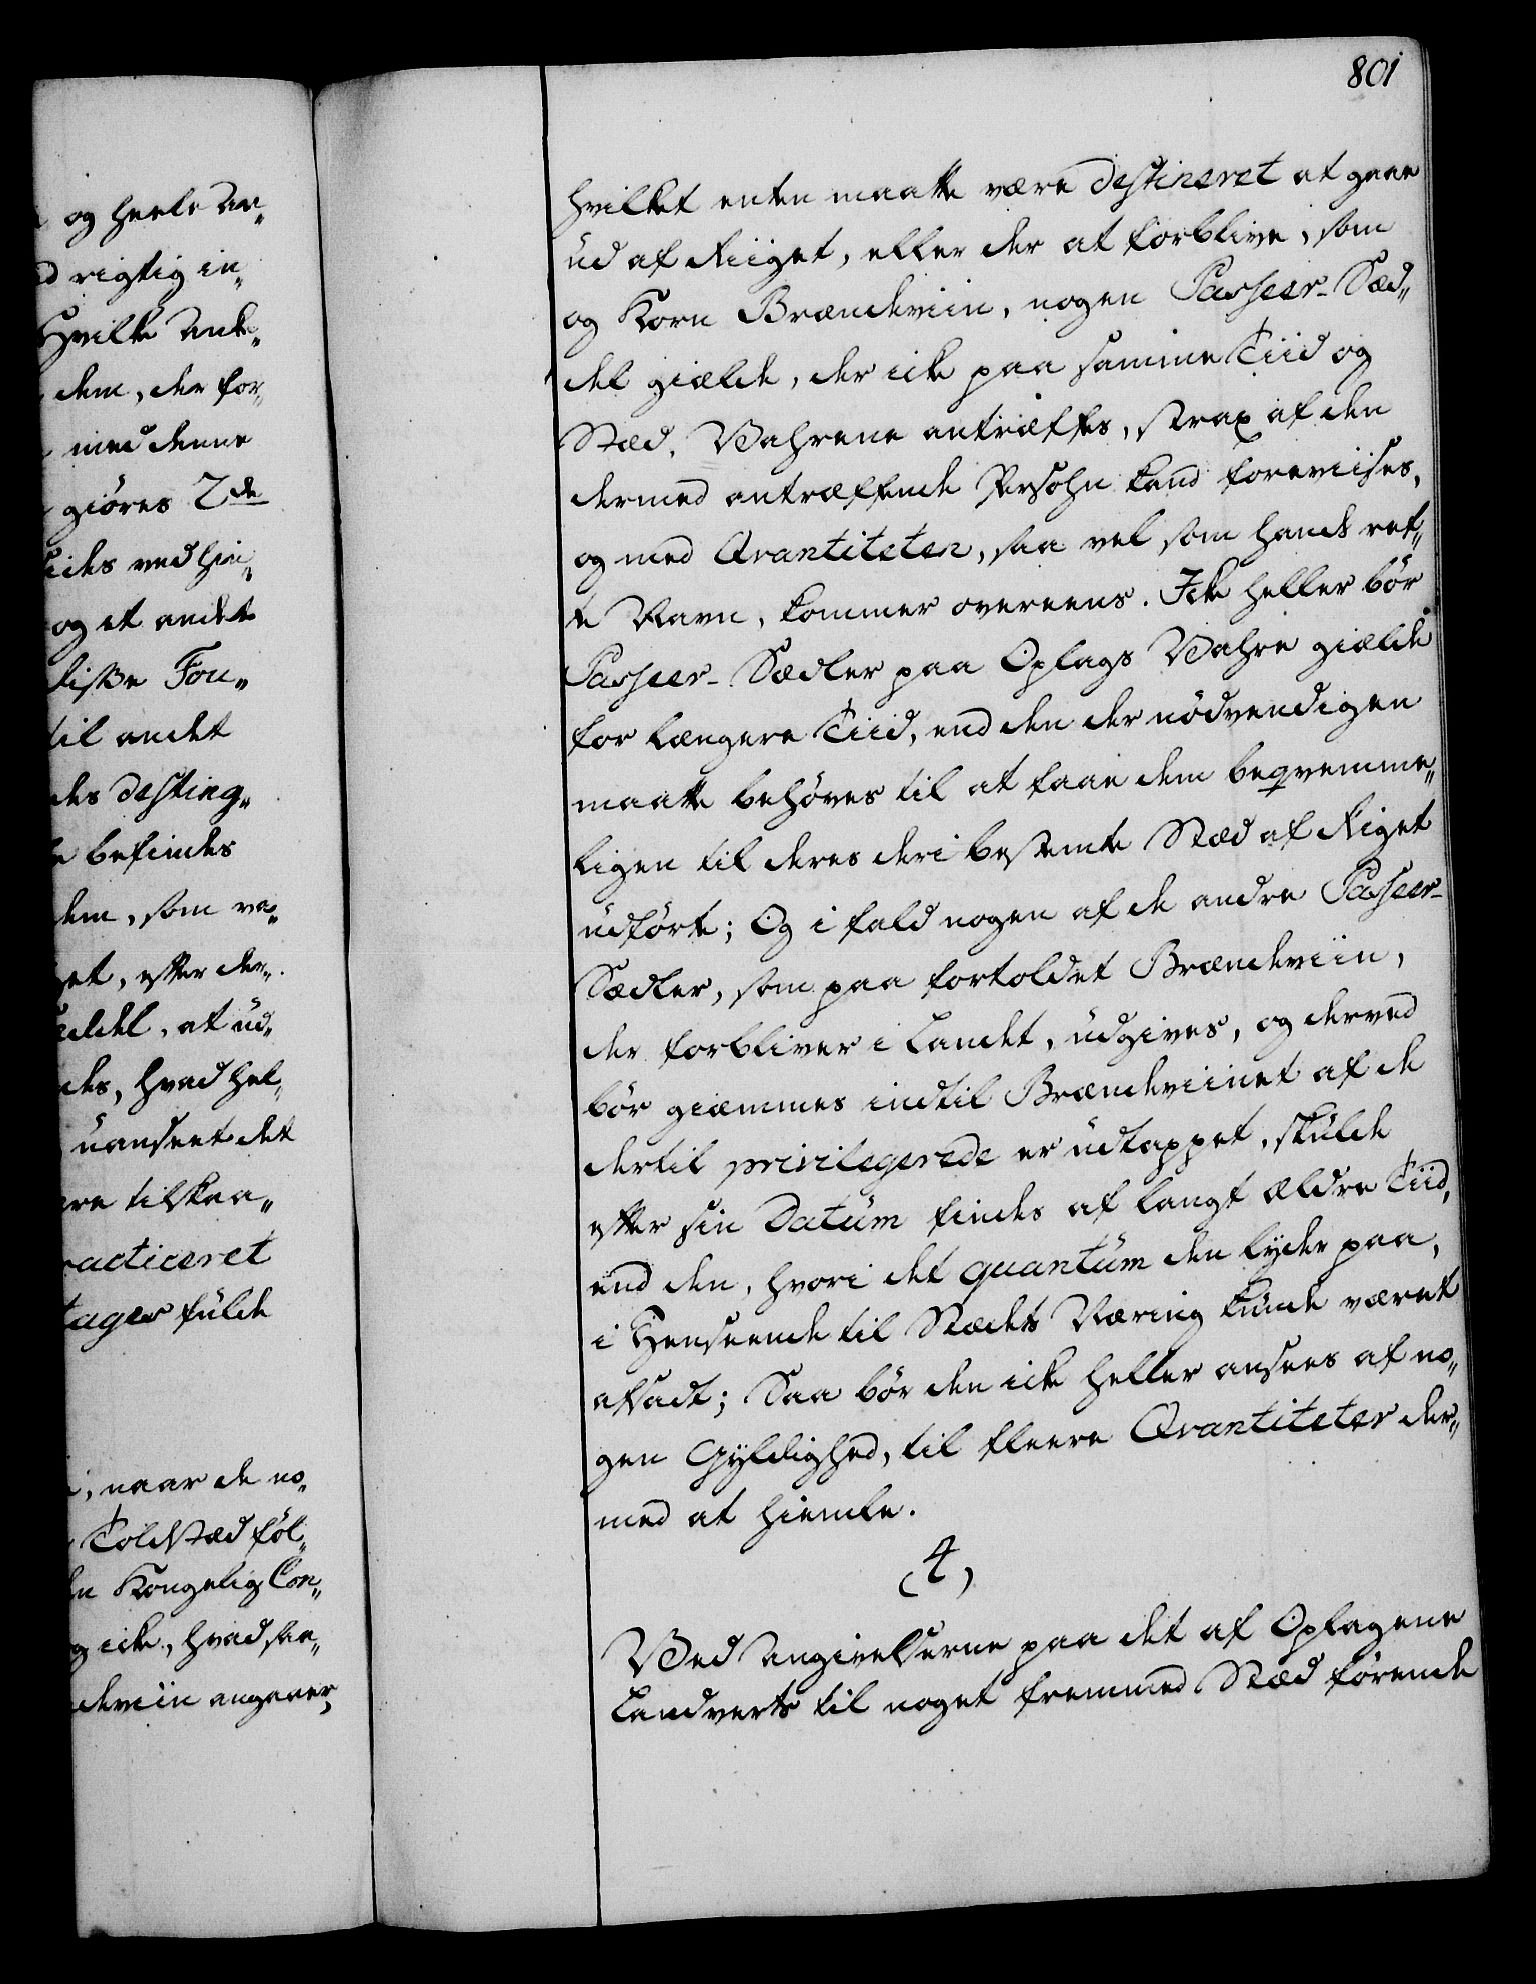 801
og heele An„
rigtig in„
Hvilke Ank„
dem, der for„
med denne
giöres 2de
ved hin„
og et andet
Fou„
til andet
desting„
befindes
dem, som va„
et, efter der„
at ud„
des, hvad hel„
uanseet det
tilskaa„
racticeret
tager fulde
naar de no„
Toldstæd föl„
Kongelig Con„
icke, hvad saa„
deviin angaaer,
hvilket enten maatte være destineret at gaae
ud af Riiget, eller der at forblive, som
og Korn Brændeviin, nogen Passeer-Sæd„
del gielde, der icke paa samme Tiid og
Stæd, Vahrene antræffes, strax af den
dermed antræffende Persohn kand foreviises,
og med Qvantiteten, saa vel som hands ret„
te Navn, kommer overeens. Icke heller bör
Passeer-Sædler paa Oplags Vahre gielde
for længere Tiid, end den der nödvendigen
maatte behöves til at faae dem beqvemme„
ligen til deres deri bestemte Stæd af Riget
udført; Og i fald nogen af de andre Passeer-
Sædler, som paa fortoldet Brændeviin,
der forbliver i Landet, udgives, og derved
bör giemmes indtil Brændeviinet af de
dertil privilegerede er udtappet, skulde
efter sin Datum findes af langt ældre Tiid,
end den, hvori det quantum den lyder paa,
i Henseende til Stædets Næring kunde været
afsadt; Saa bör den icke heller ansees af no„
gen Gyldighed, til fleere Qvantiteter der„
med at hiemle.
4,
Ved Angivelserne paa det af Oplagene
Landverts til noget fremmed Stæd förende